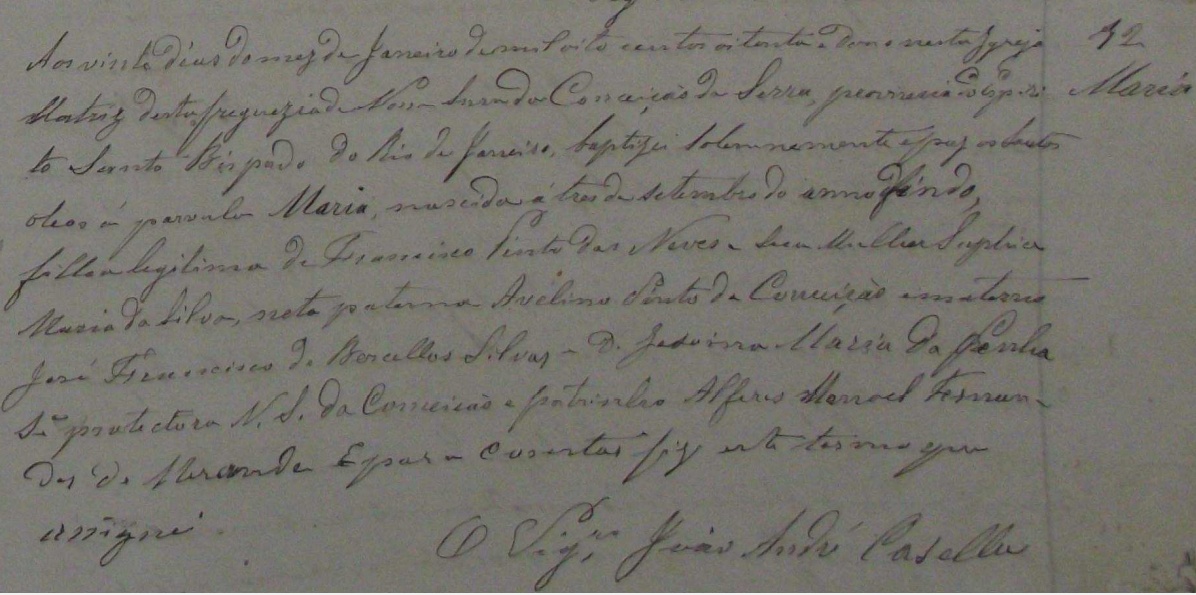 Aos vinte dias do mez de Janeiro de mil oito centos oitenta e dous nesta Igreja
Matriz desta freguezia de Nossa Senra da Conceição da Serra, provincia do Espiri
to Santo Bispado do Rio de Janeiro, baptizei solemnemente e puz os Santos
oleos á parvula Maria, nascida á tres de setembro do anno findo,
filha legitima de Francisco Pinto das Neves e sua Mulher
Maria da Silva, neta paterna Avelino Pinto da Conceição e materna
José Francisco de Barcellos Silvas e D. Maria da Penha
Sª protectora N. S. da Conceição e padrinho Alferes Manoel Fernan-
des de Miranda E para constar fiz este termo que
assignei.
O Vigrº João André Casella
32
Maria